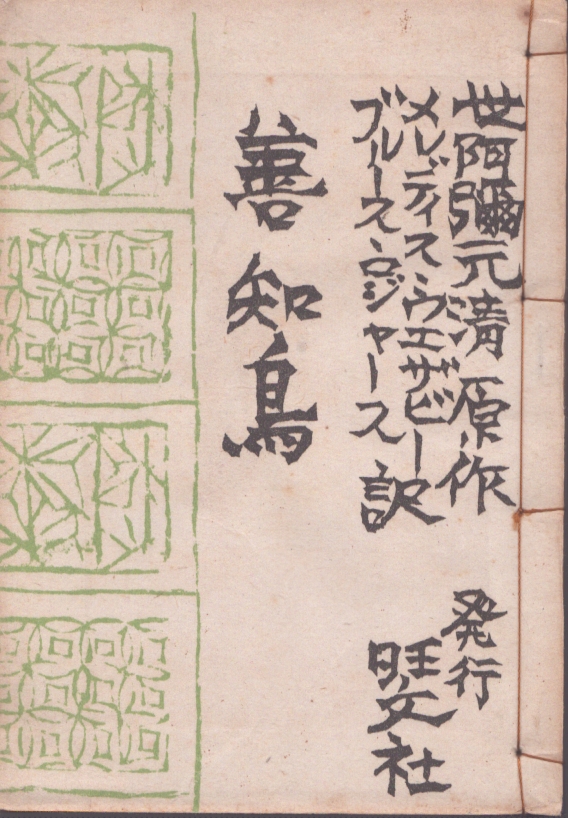 世阿彌元清原作
メレディス、ウエザビー
ブルース、ロジャース 訳
善知鳥
発行
旺文社